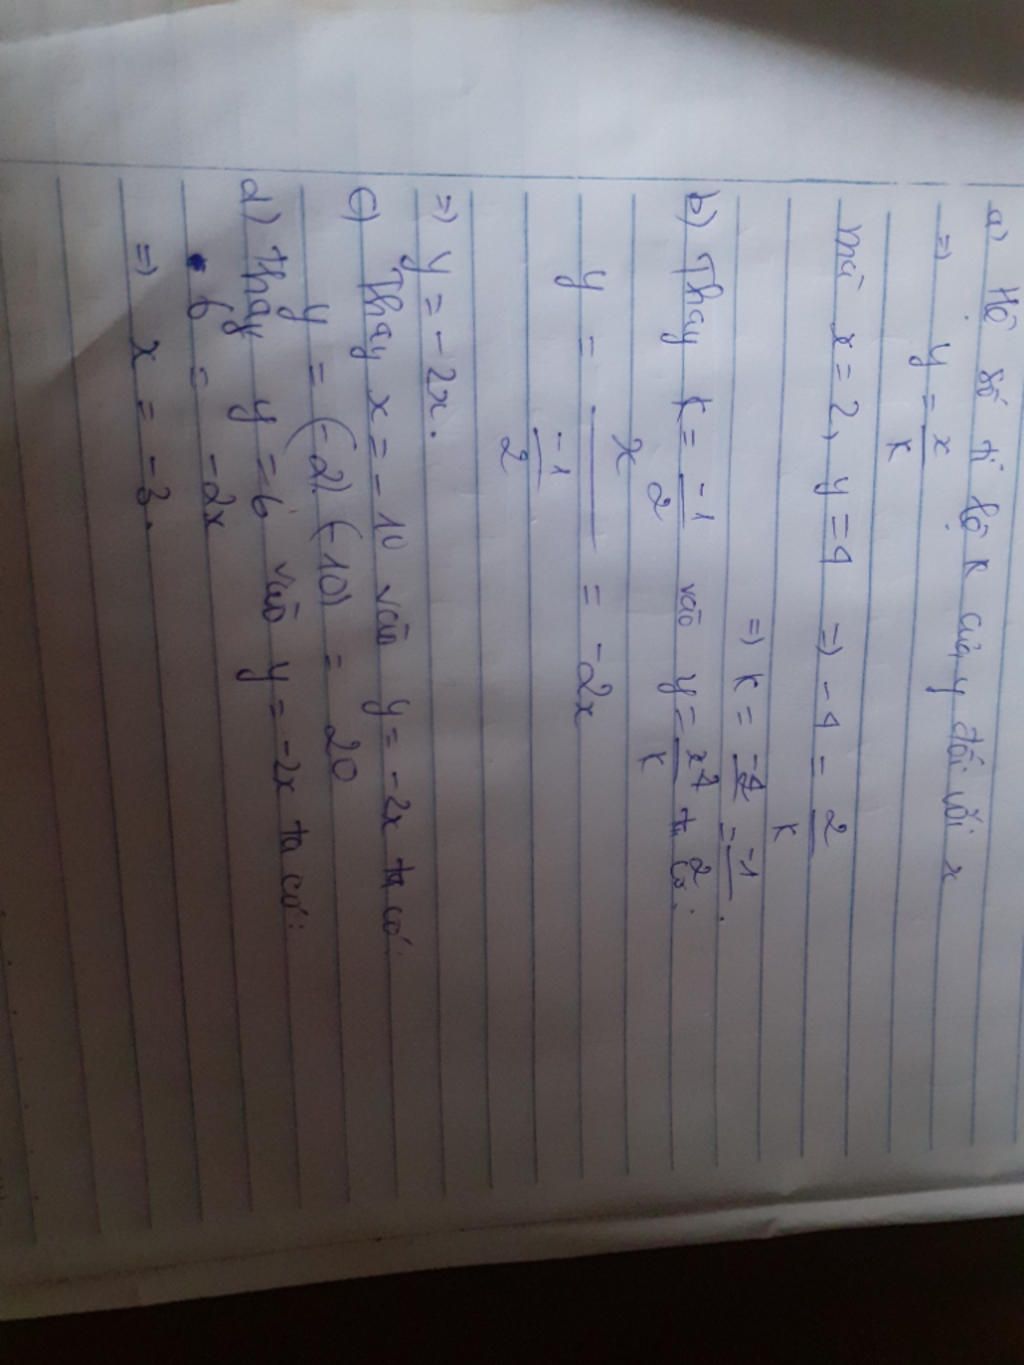 a) Hệ số tỉ lệ k của y đối với x
=) y = x/k
mà x = 2, y = 4 =) -4 = 2/k
=) k = -4/2 = -1/2.
b) Thay k = -1/2 vào y = x/k ta có:
y = x/(-1/2) = -2x
=) y = -2x.
c) Thay x = -10 vào y = -2x ta có
y = (-2).(-10) = 20
d) thay y = 6 vào y = -2x ta có:
6 = -2x
=) x = -3.